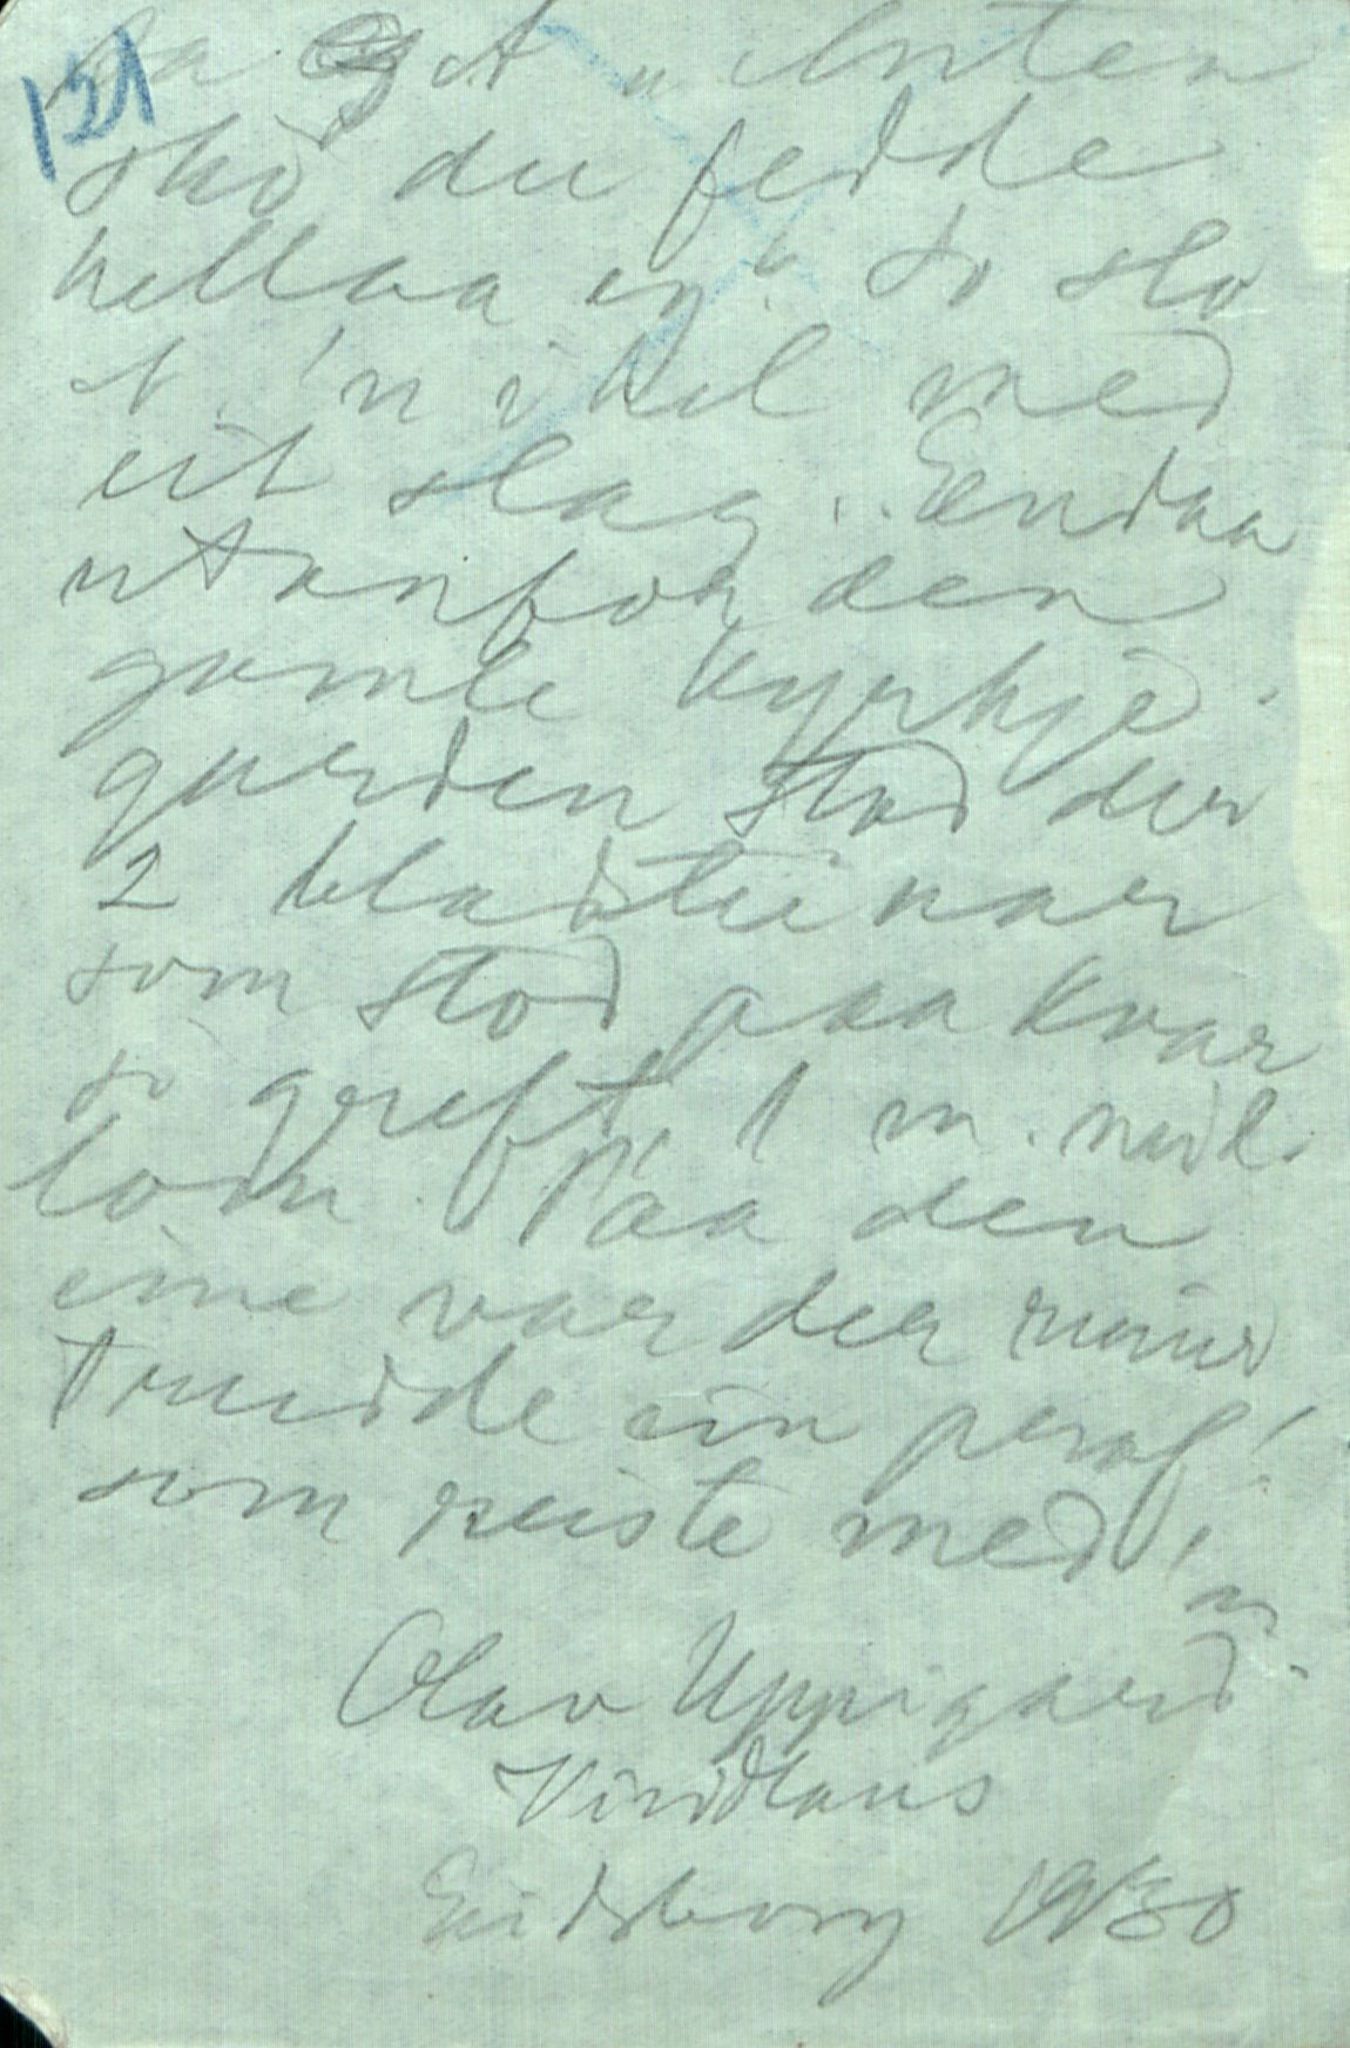 121
skó du fedde
hellaa eg". So slo
'n i hel med
eit slag... Endaa
utanfor den
gamle kyrkje-
garden stod der
2 blodsteinar
som stod paa kvar
so greft 1 m. mil-
lom. Paa den
eine var der runur
truidde ein penof!
som reiste med 'n
Olav Uppigard
Vindlaus
Eidsborg 1930